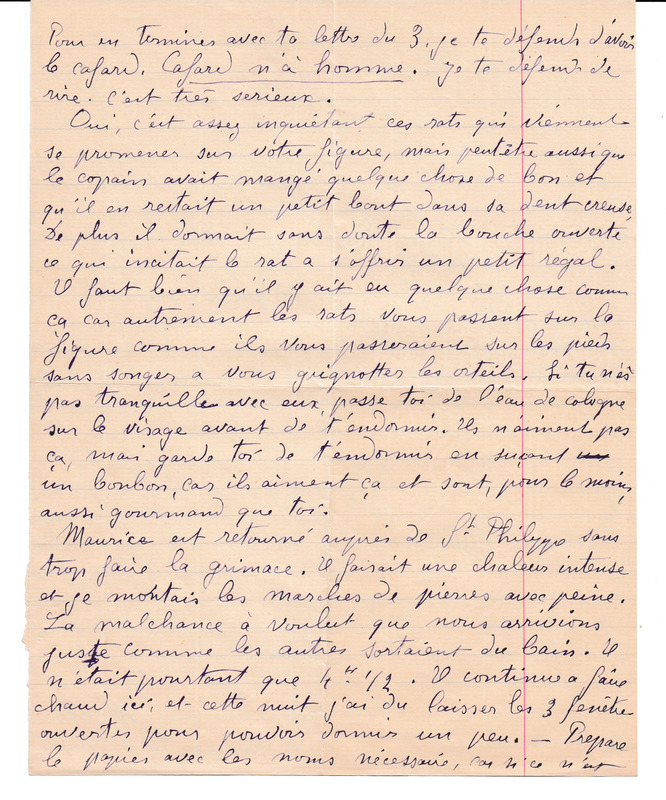 Pour en terminer avec ta lettre du 3, je te défends d'avoir
le cafard. Cafard n'a homme. Je te défends de
rire. C'est très serieux.
Oui, c'est assez inquiétant ces rats qui viennent
se promener sur votre figure, mais peut être aussi que
le copain avait mangé quelque chose de bon et
qu'il en restait un petit bout dans sa dent creuse,
De plus il dormait sans doute la bouche ouverte
ce qui incitait le rat a s'offrir un petit régal.
Il faut bien qu'il y ait eu quelque chose comme
ça car autrement les rats vous passent sur la
figure comme ils vous passeraient sur les pieds
sans songer a vous grignotter les orteils. Si tu n'es
pas tranquille avec eux, passe toi de l'eau de cologne
sur le visage avant de t'endormir. Ils n'aiment pas
ça, mais garde toi de t'endormir en suçant
un bonbon, car ils aiment ça et sont, pour le moins,
aussi gourmand que toi.
Maurice est retourné auprès de St Philippe sans
trop faire la grimace. Il faisait une chaleur intense
et je montais les marches de pierres avec peine.
La malchance à voulut que nous arrivions
juste comme les autres sortaient du bain. Il
n'était pourtant que 4 hs 1/2. Il continue a faire
chaud ici, et cette nuit j'ai du laisser les 3 fenêtre
ouvertes pour pouvoir dormir un peu. — Prepare
le papier avec les noms nécessaire, car si ce n'est